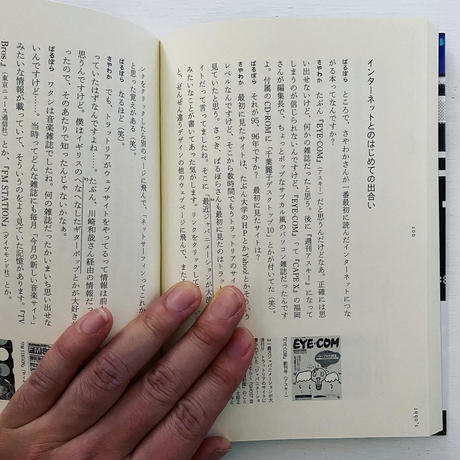 インターネットとのはじめての出合い
ばるぼら ところで、さやわかさんが一番最初に読んだインターネットにつな
がる本ってなんですか。
さやわか たぶん『EYE・COM』(アスキー)だと思うんだけどなあ。正確には思
い出せないけど、何かの雑誌だったと思う。後に『週刊アスキー』になって
しまうのが信じられないんですけど、『EYE・COM』って、『GAPE X』の福岡
さんが編集長で、ちょっとポップなサブカル風のパソコン雑誌だったんです
よ。付属のCD-ROMに「千葉麗子デスクトップ10」とかが付いてた(笑)。
ばるぼら それが95、96年ですか? 最初に見たサイトは?
さやわか 最初に見たサイトは、たぶん大学のHPとかYahoo!とかそういう
レベルなんですけど、そこから数時間でもうトラットリアのサイ
見ていたと思う。さっき、ばるぼらさんも最初に見たのはトラッ
イトだって言ってましたね。そこに「最近ジャパニメーションが大
みたいなことが書いてあった気がします。リンクをクリックして
と、ぜんぜん違うデザインの他のウェブページに飛んで、また
ンクをクリックしたら別のページに飛んで、「ネットサーフィンってこれか
と思った覚えがある(笑)。
ばるぼら なるほど(笑)。
さやわか でも、トラットリアがウェブサイトをやってるって情報は前
っていたはずなんですよね
たぶん、川崎和哉さん経由の情報だっ
思うんだけど。僕はイギリスのへなへなしたギターポップとかが大好き
ったので、そのあたりで知ったんじゃないかなぁ。
ばるぼら ワタシは音楽雑誌でしたね。何の雑誌だったかいまいち思い出せな
いんですけど……。当時ってどんな雑誌にも毎月「今月の新しい音楽サイト」
みたいな情報が載っていて、そういうのをよく見ていた記憶があります。『TV
Bros.』(東京ニュース通信社)とか、『FM STATION』(ダイヤモンド社)とか。
100
1990's
EYE・COM
『EYE・COM』創刊号(アスキー)
『FM STATION』